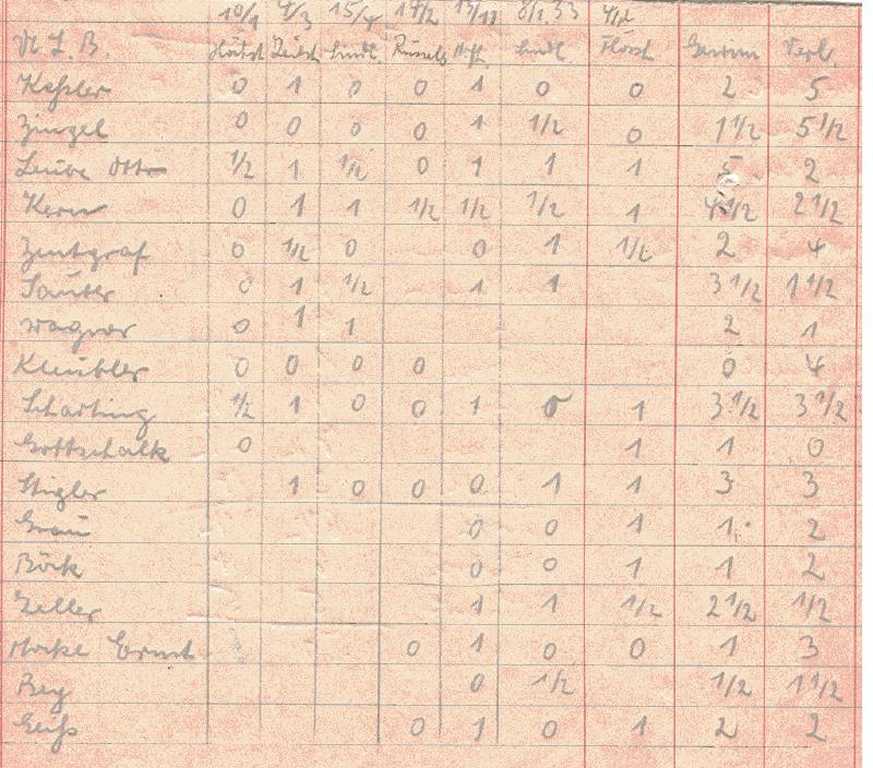 10/1 4/3 15/4 17/2 13/11 8/1.33 4/2
V. L. B. Höchst Lindl. Rüssels Hofh. Lindl. Flörsh Gewonn Verl.
Keßler 0 1 0 0 1 0 0 2 5
Zingel 0 0 0 0 1 1/2 0 1 1/2 5 1/2
Leube Otto 1/2 1 1/2 0 1 1 1 5 2
Kern 0 1 1 1/2 1/2 1/2 1 4 1/2 2 1/2
Zentgraf 0 1/2 0 0 1 1/2 2 4
Sauber 0 1 1/2 1 1 3 1/2 1 1/2
Wagner 0 1 1 2 1
Kleubler 0 0 0 0 0 4
Scharting 1/2 1 0 0 1 0 1 3 1/2 3 1/2
Gottschalk 0 1 1 0
Stigler 1 0 0 0 1 1 3 3
Grau 0 0 1 1 2
Böck 0 0 1 1 2
Zeller 1 1 1/2 2 1/2 1/2
Ernst 0 1 0 0 1 3
Bey 0 1/2 1/2 1 1/2
Geiß 0 1 0 1 2 2